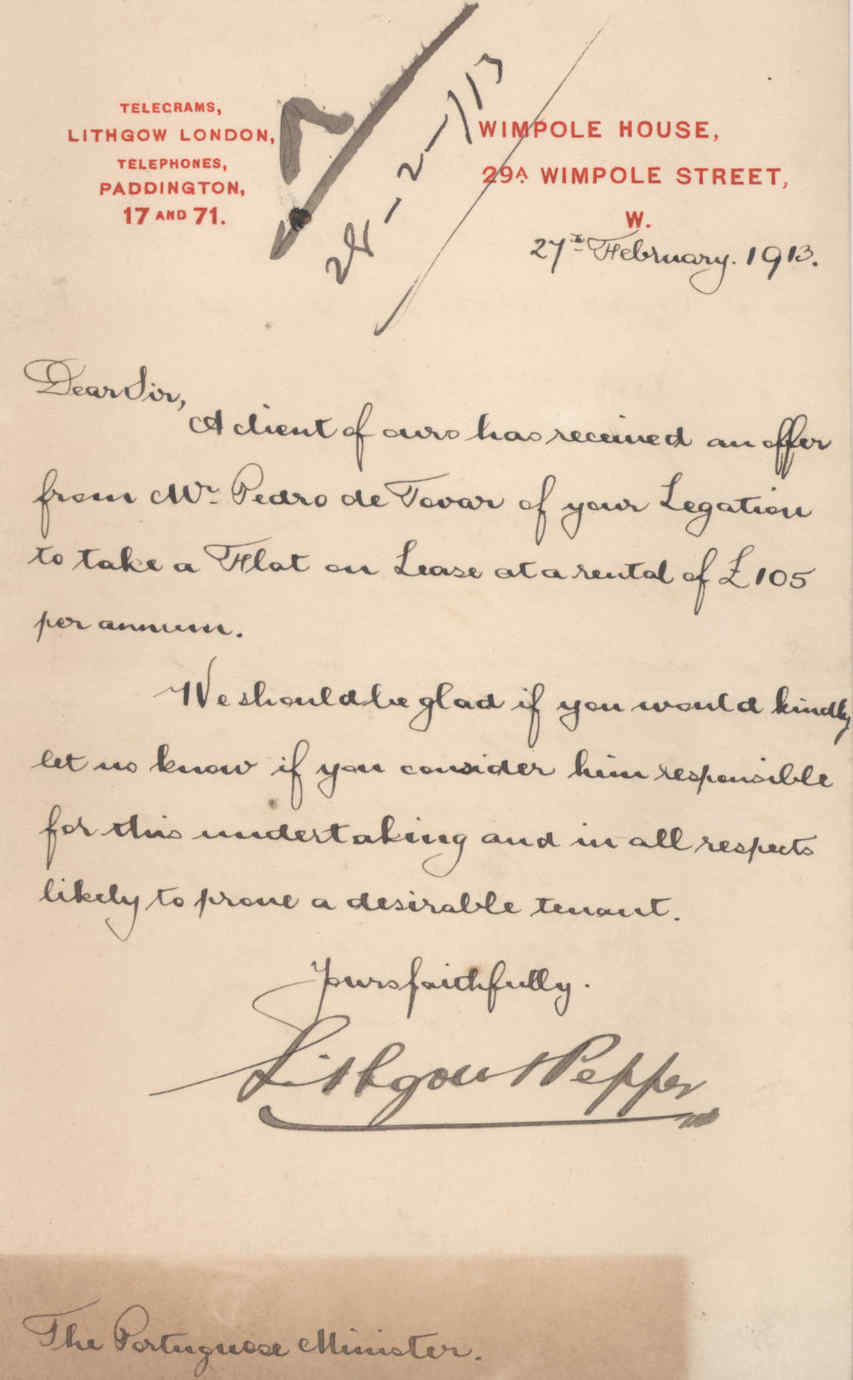 TELEGRAMS,
LITHGOW LONDON,
TELEPHONES,
PADDINGTON,
17 AND 71.
28-2-913
WIMPOLE HOUSE,
29A WIMPOLE STREET,
W.
27th February. 1913.
Dear Sir,
A client of ours has received an offer
from Mr Pedro de Tovar of your Legation
to take a Flat on Lease at a rental of £105
per annum.
We should be glad if you would kindly
let us know if you consider him responsible
for this undertaking and in all respects
likely to prove a desirable tenant.
Yours faithfully.
Lithgow & Pepper
The Portuguese Minister.